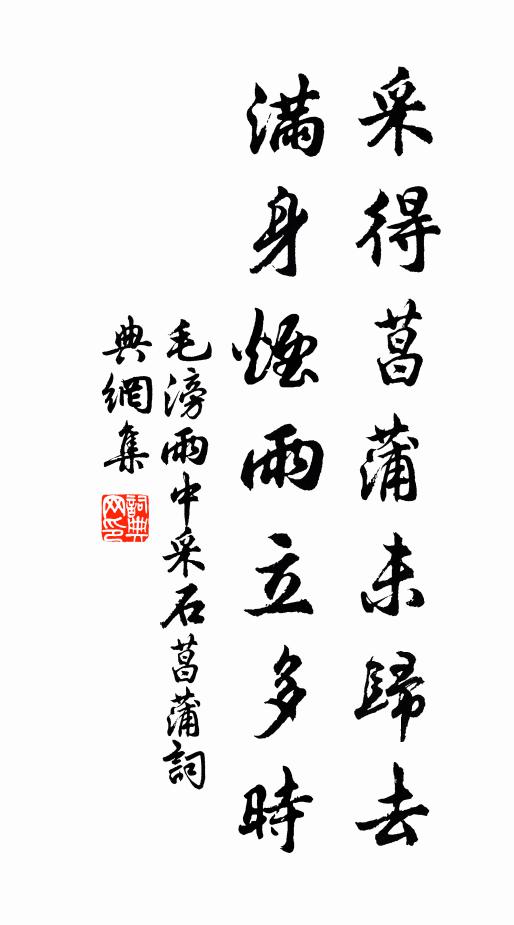 采得菖蒲未歸去
滿身煙雨立多時
毛滂雨中采石菖蒲詞
典網集
詞典网印